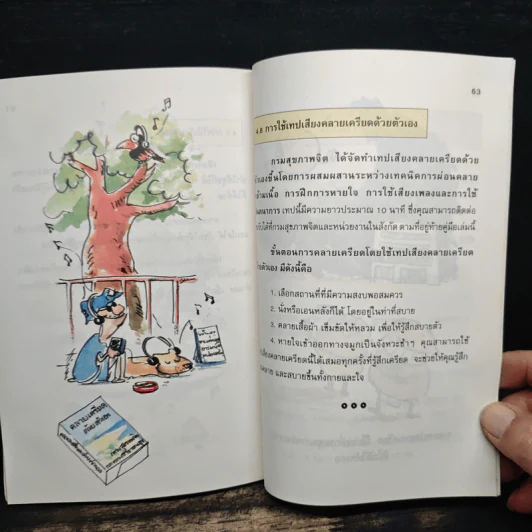 คลายเครียด
ด้วยตัวเอง
63
4.8 การใช้เทปเสียงคลายเครียดด้วยตัวเอง
กรมสุขภาพจิต ได้จัดทำเทปเสียงคลายเครียดด้วย
ตัวเองขึ้นโดยการผสมผสานระหว่างเทคนิคการผ่อนคลาย
กล้ามเนื้อ การฝึกการหายใจ การใช้เสียงเพลงและการใช้
จินตนาการ เทปนี้มีความยาวประมาณ 10 นาที ซึ่งคุณสามารถติดต่อ
ได้ที่กรมสุขภาพจิตและหน่วยงานในสังกัด ตามที่อยู่ท้ายคู่มือเล่มนี้
ขั้นตอนการคลายเครียดโดยใช้เทปเสียงคลายเครียด
ด้วยตัวเอง มีดังนี้คือ
1. เลือกสถานที่ที่มีความสงบพอสมควร
2. นั่งหรือเอนหลังก็ได้ โดยอยู่ในท่าที่สบาย
3. คลายเสื้อผ้า เข็มขัดให้หลวม เพื่อให้รู้สึกสบายตัว
4. หายใจเข้าออกทางจมูกเป็นจังหวะช้าๆ คุณสามารถใช้
เสียงคลายเครียดนี้ได้เสมอทุกครั้งที่รู้สึกเครียด จะช่วยให้คุณรู้สึก
คลาย และสบายขึ้นทั้งกายและใจ